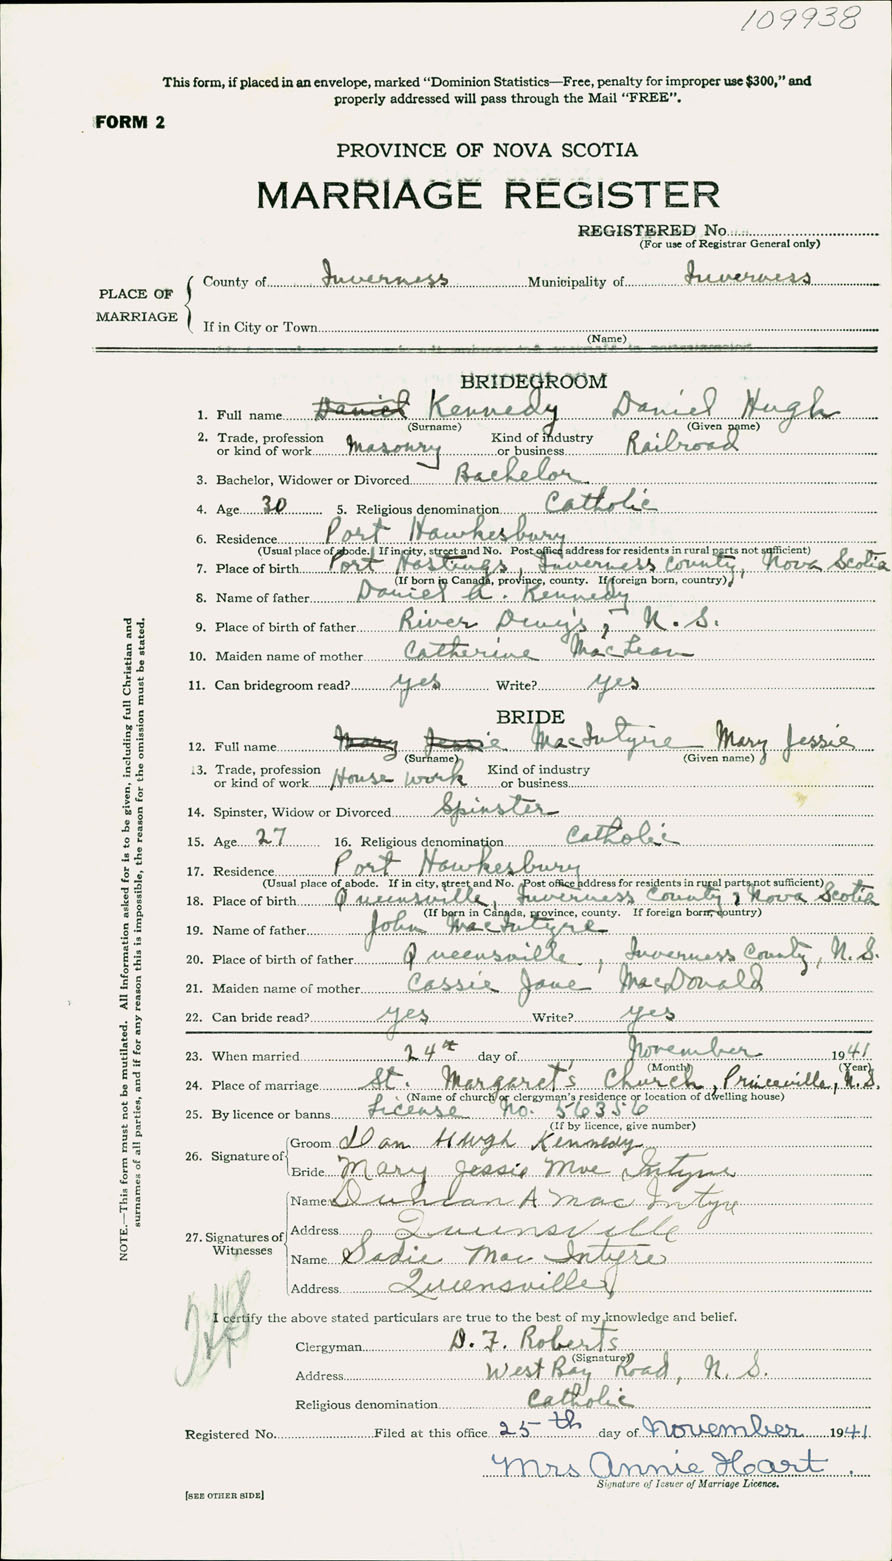 109938
This form, if placed in an envelope, marked “Dominion Statistics—Free, penalty for improper use $300,” and
properly addressed will pass through the Mail “FREE”.
FORM 2
PROVINCE OF NOVA SCOTIA
MARRIAGE REGISTER
REGISTERED No.
(For use of Registrar General only)
PLACE OF MARRIAGE
County of Inverness Municipality of Inverness
If in City or Town
(Name)
BRIDEGROOM
1. Full name Daniel Kennedy Daniel Hugh
(Surname) (Given name)
2. Trade, profession or kind of work Masonry Kind of industry or business Railroad
3. Bachelor, Widower or Divorced Bachelor
4. Age 30 5. Religious denomination Catholic
6. Residence Port Hawkesbury
(Usual place of abode. If in city, street and No. Post office address for residents in rural parts not sufficient)
7. Place of birth Port Hastings, Inverness County, Nova Scotia
(If born in Canada, province, county. If foreign born, country)
8. Name of father Daniel A. Kennedy
9. Place of birth of father River Deny's, N.S.
10. Maiden name of mother Catherine MacLean
11. Can bridegroom read? yes Write? yes
BRIDE
12. Full name Mary Jessie MacIntyre Mary Jessie
(Surname) (Given name)
13. Trade, profession or kind of work House work Kind of industry or business
14. Spinster, Widow or Divorced Spinster
15. Age 27 16. Religious denomination Catholic
17. Residence Port Hawkesbury
(Usual place of abode. If in city, street and No. Post office address for residents in rural parts not sufficient)
18. Place of birth Queensville, Inverness County, Nova Scotia
(If born in Canada, province, county. If foreign born, country)
19. Name of father John MacIntyre
20. Place of birth of father Queensville, Inverness County, N.S.
21. Maiden name of mother Cassie Jane MacDonald
22. Can bride read? yes Write? yes
23. When married 24th day of November 1941
(Month) (Year)
24. Place of marriage St. Margaret's Church, Princeville, N.S.
(Name of church or clergyman's residence or location of dwelling house)
25. By licence or banns License No. 56356
(If by licence, give number)
26. Signature of
Groom Dan Hugh Kennedy
Bride Mary Jessie Mac Intyre
27. Signatures of Witnesses
Name Duncan A Mac Intyre
Address Queensville
Name Sadie Mac Intyre
Address Queensville
I certify the above stated particulars are true to the best of my knowledge and belief.
Clergyman D. F. Roberts
(Signature)
Address West Bay Road, N. S.
Religious denomination Catholic
Registered No. Filed at this office 25th day of November 1941.
Mrs Annie Hart.
Signature of Issuer of Marriage Licence.
[SEE OTHER SIDE]
NOTE.—This form must not be mutilated. All Information asked for is to be given, including full Christian and
surnames of all parties, and if for any reason this is impossible, the reason for the omission must be stated.